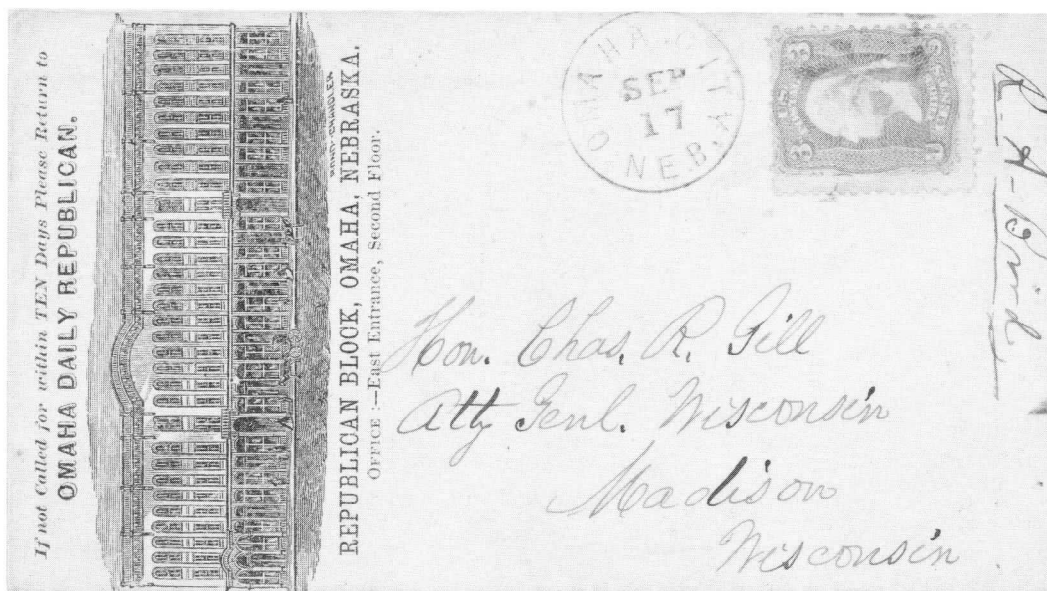 If not Called for within TEN Days Please Return to
OMAHA DAILY REPUBLICAN.
REPUBLICAN BLOCK, OMAHA, NEBRASKA.
OFFICE :—East Entrance, Second Floor.
OMAHA CITY
SEP
17
NEB.
3 U.S. 3
Hon. Chas. R. Gill
Atty Genl. Wisconsin
Madison
Wisconsin
R. A. Bird